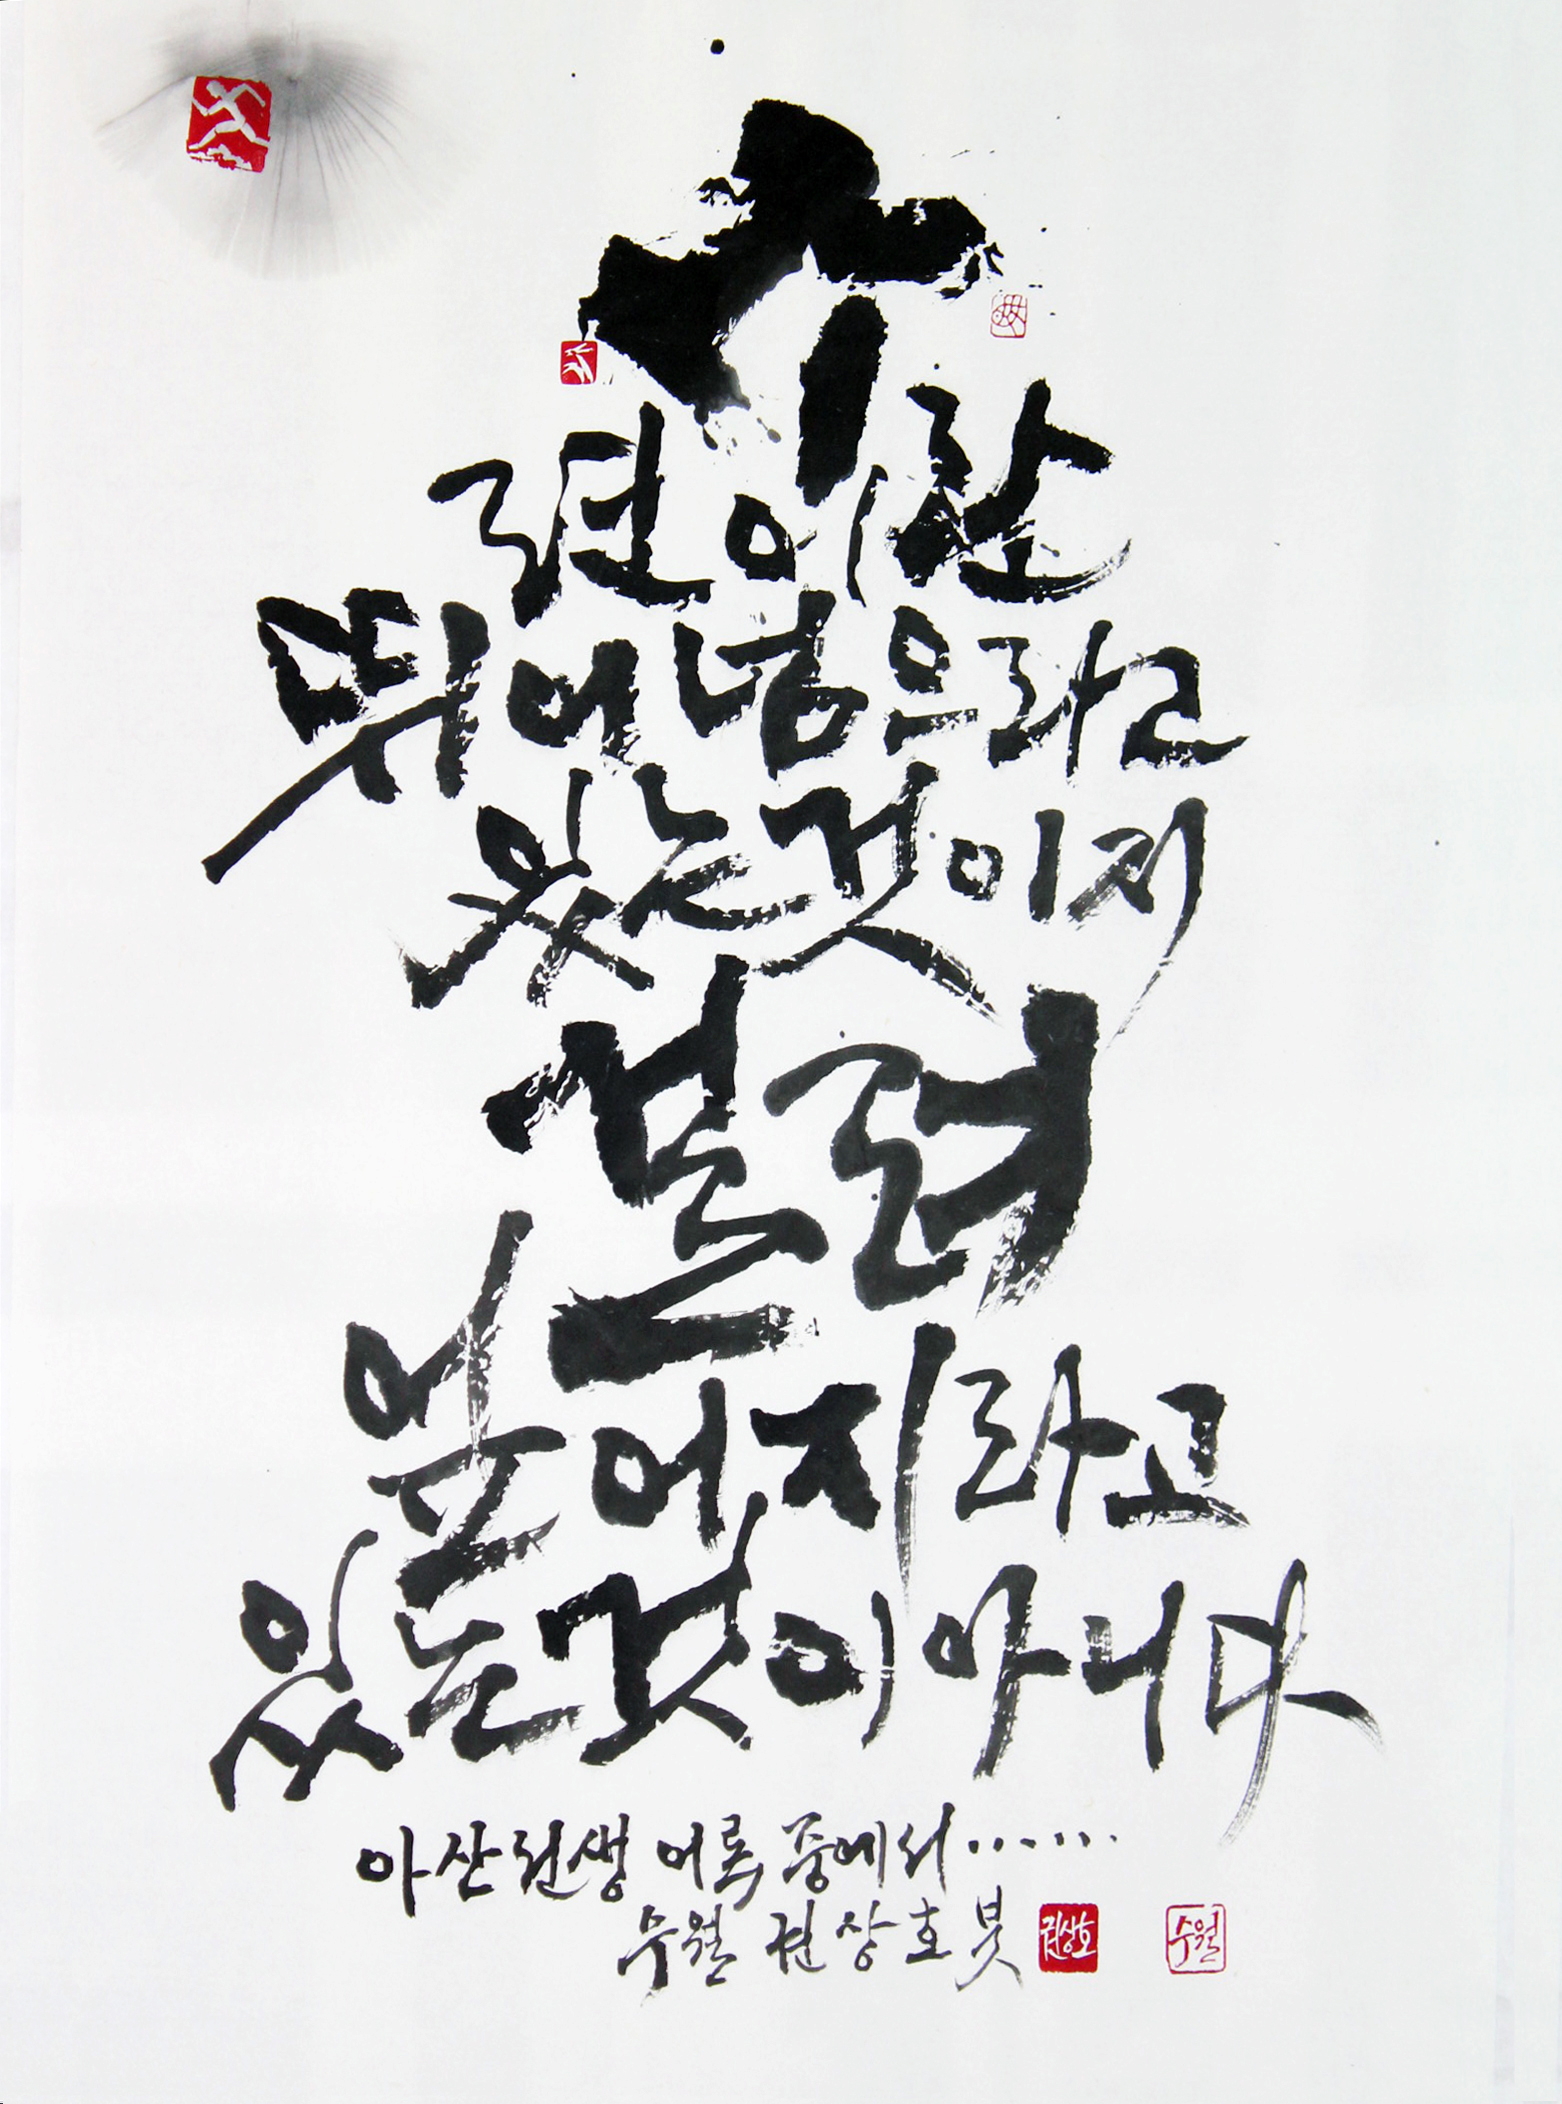 시
련이란
뛰어넘으라고
있는것이지
걸려
엎어지라고
있는것이아니다
아산선생 어록 중에서······
수월 권상호 붓
권상호
수월